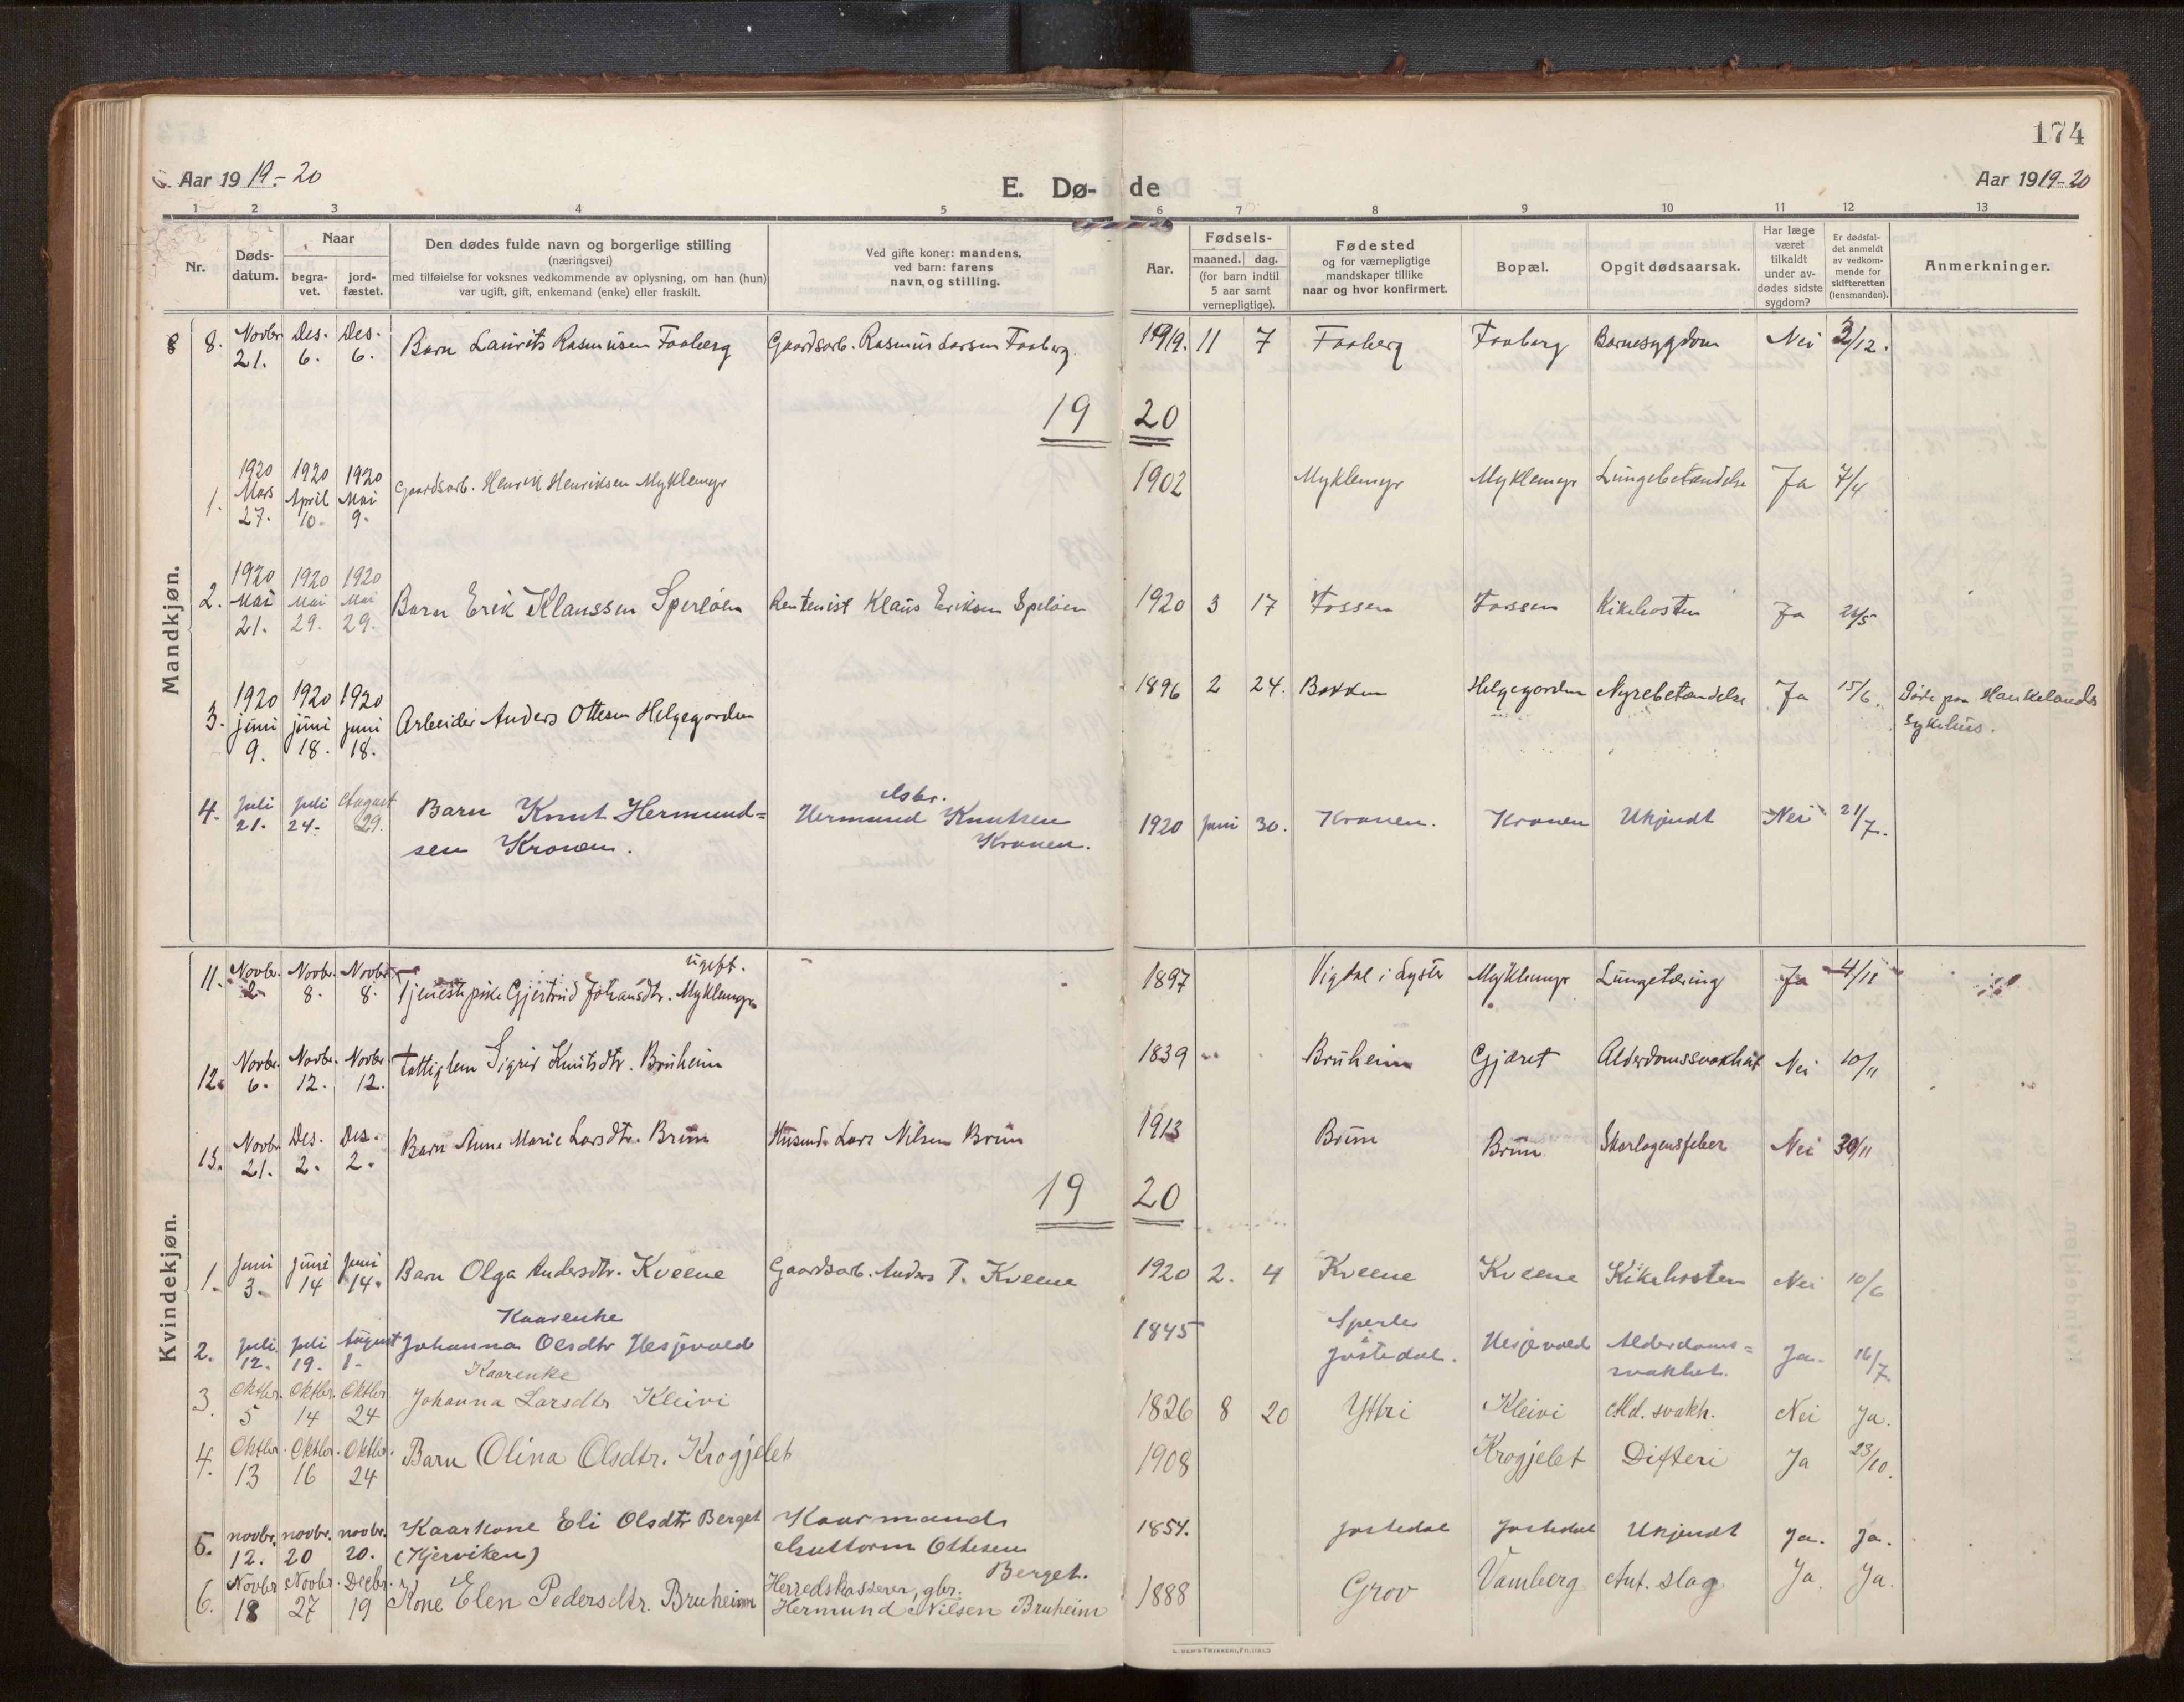 174
Aar 1919.-20
E. Dø- de
Aar 1919-20
1 2 3 4 5 6 7 8 9 10 11 12 13
Nr.
Døds-
datum.
Naar
begra-
vet.
jord-
fæstet.
Den dødes fulde navn og borgerlige stilling
(næringsvei)
med tilføielse for voksnes vedkommende av oplysning, om han (hun)
var ugift, gift, enkemand (enke) eller fraskilt.
Ved gifte koner: mandens,
ved barn: farens
navn og stilling.
Aar.
Fødsels-
maaned. dag.
(for barn indtil
5 aar samt
vernepligtige).
Fødested
og for værnepligtige
mandskaper tillike
naar og hvor konfirmert.
Bopæl.
Opgit dødsaarsak.
Har læge
været
tilkaldt
under av-
dødes sidste
sygdom?
Er dødsfal-
det anmeldt
av vedkom-
mende for
skifteretten
(lensmanden).
Anmerkninger.
Mandkjøn.
8 8. Novbr. 21. Des. 6. Des. 6. Barn Laurits Rasmusen Faaberg Gaardsarb. Rasmus Larsen Faaberg. 1919. 11 7 Faaberg Faaberg Barnesygdom Nei 3/12.
19 20
1. 1920 Mars 27. 1920 April 10. 1920 Mai 9. Gaardsarb. Henrik Henriksen Myklemyr 1902 Myklemyr Myklemyr Lungebetændelse Ja 7/4
2. 1920 Mai 21. 1920 Mai 29. 1920 Mai 29. Barn Erik Klaussen Sperløen Rentenist Klaus Eriksen Speløen 1920 3 17 Fossen Fossen Kikehosten Ja
3. 1920 juni 9. 1920 juni 18. 1920 juni 18. Arbeider Anders Ottesen Helgegarden 1896 2 24. Bakken Helgegarden Nyrebetændelse Ja 15/6. Døde paa Haukelands
sykehus.
4. Juli 21. Juli 24. August 29. Barn Knut Hermund=
sen Kronen.
Hermund Knutsen
Kronen.
1920 juni 30. Kronen. Kronen Ukjendt Nei 21/7.
11. Novbr. 2 Novbr. 8. Novbr. 8. Tjenestepike Gjertrud Johansdtr. Myklemyr ugift. 1897 Vigdal i Lystr Myklemyr Lungetæring Ja 4/11
Kvindekjøn.
12. Novbr. 6. Novbr. 12. Novbr. 12. Fattiglem Sigrid Knutsdtr. Bruheim 1839 Bruheim Gjæret Alderdomssvakhet Nei 10/11
13. Novbr. 21. Des. 2. Des. 2. Barn Anne Marie Larsdtr. Brun Husmd. Lars Nilsen Brun 1913 Brun Brun Skarlagensfeber Nei 30/11
19 20
1. Juni 3. juni 14 Juni 14. Barn Olga Andersdtr. Kveene Gaardsarb. Anders T. Kveene 1920 2. 4 Kveene Kveene Kikehosten Nei 10/6
2. Juli 12. Juli 19. August 1. Kaarenke
Johanna Olsdtr Hesjevold 1845 Sperle
i
Jostedal. Hesjevold Alderdoms=
svakhet. Ja. 16/7.
3. Oktbr. 5 Oktbr. 14 Oktbr. 24 Kaarenke
Johanna Larsdtr Kleivi 1826 8 20 Yttri Kleivi Ald. svakh. Nei Ja.
4. Oktbr. 13 Oktbr. 16 Oktbr. 24 Barn Olina Olsdtr. Krogjelet 1908 Krogjelet Difteri Ja 23/10.
5. novbr. 12. novbr. 20 novbr. 20. Kaarkone Eli Olsdtr Berget
(Kjerviken)
Kaarmand
Guttorm Ottesen
Berget.
1854. Jostedal Jostedal Ukjendt Ja. Ja.
6. Novbr 18 Novbr. 27 Decbr. 19 Kone Elen Pedersdtr. Bruheim Herredskasserer, gbr.
Hermund Nilsen Bruheim 1888 Grov Vamberg Ant. slag Ja. Ja.